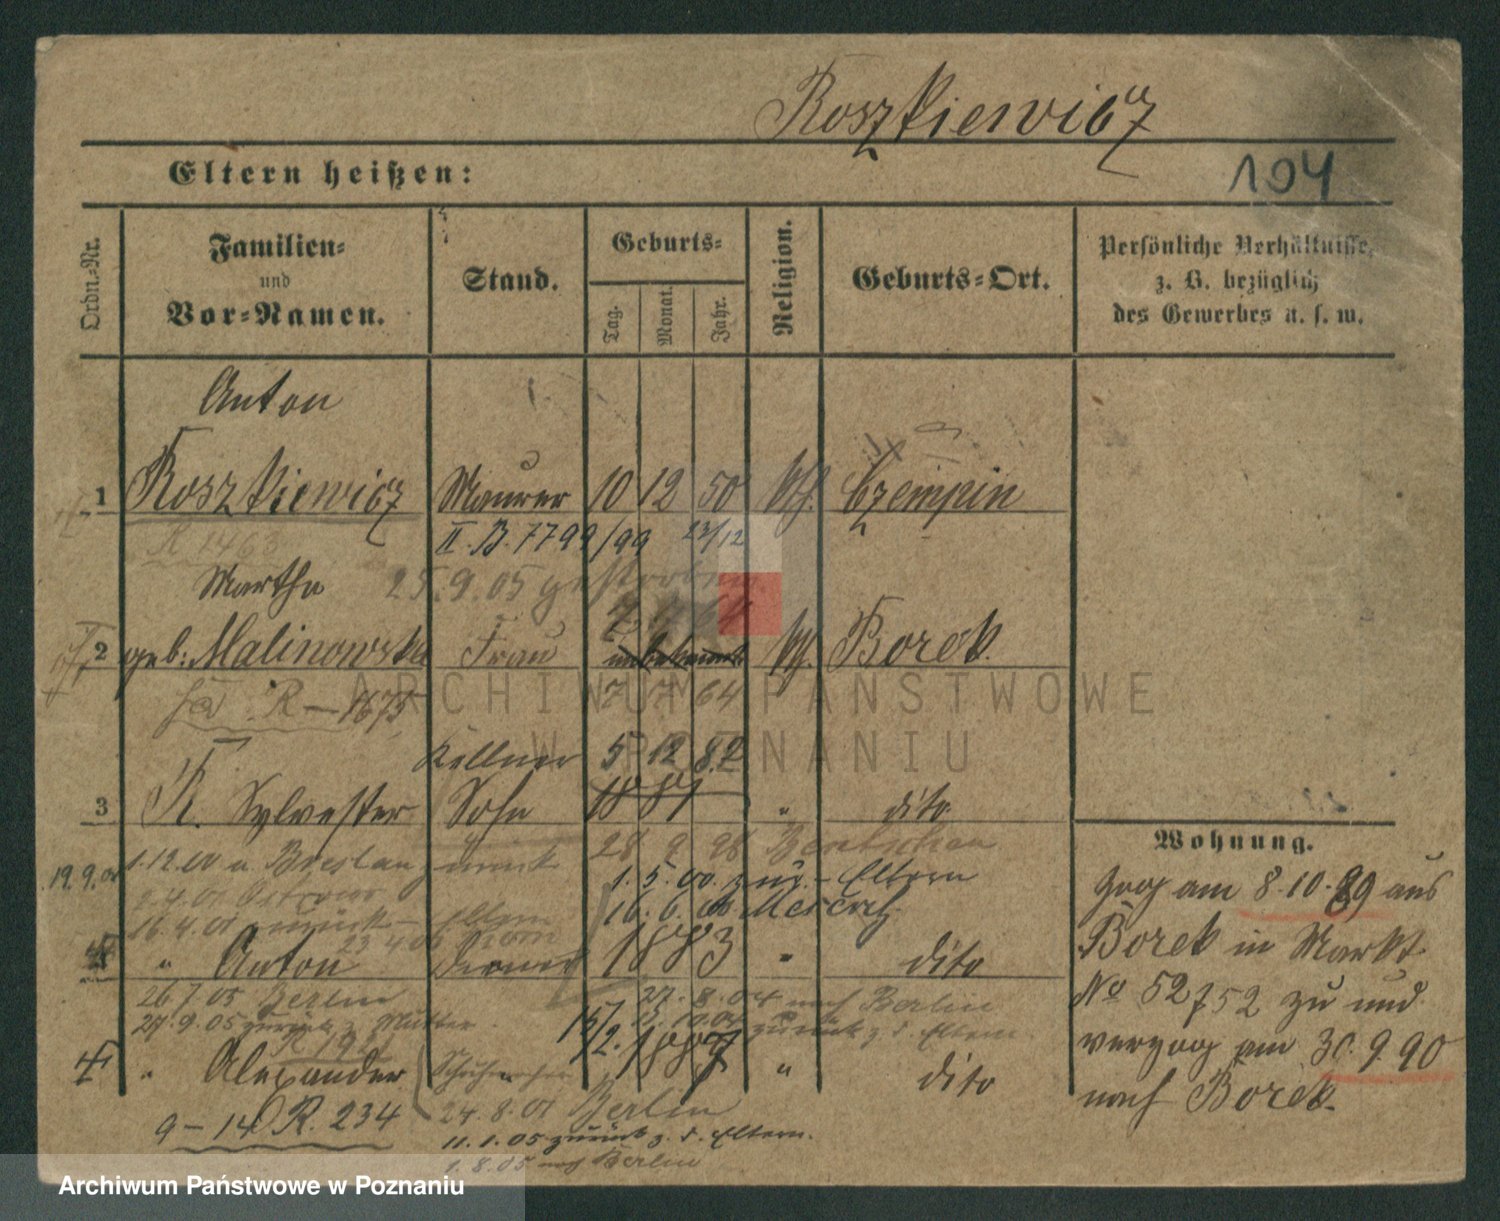 Roszkiewicz
Eltern heißen:
104
Ordn.-Nr.
Familien-
und
Vor-Namen.
Stand.
Geburts-
Tag.
Monat.
Jahr.
Religion.
Geburts-Ort.
Persönliche Verhältnisse,
z. B. bezüglich
des Gewerbes u. s. w.
Anton
1 Roszkiewicz Maurer 10 12 50 kth. Czempin
R 1463 II. B. 7799/99 23/12
Martha 25.9.05 gestorben
2 geb. Malinowska Frau unbekannt kth. Borek
R – 1675 7 7 64
Kellner 5 12 82
3 R. Sylvester Sohn 1881 " dito
1.12.00 n Breslau zurück 28 9 98 Bentschen
19.9.01 1.5.00. zur. – Eltern
2.4.01 Ostrowo 16.6.00 Meseritz
16.4.01 zurück – Eltern
23 4 03
4 " Anton 1883 " dito
26 7 05 Berlin 27.8.04 nach Berlin
27.9.05 zurück z. Mutter zurück z. d. Eltern
" Alexander 1887 " dito
9 – 14 R. 234 24.8.01 Berlin
11.1.05 zurück z. d. Eltern.
1.8.05 nach Berlin
Wohnung.
Zog am 8.10.89 aus
Borek in Markt
No 52/52 zu und
verzog am 30.9.90
nach Borek.
ARCHIWUM PAŃSTWOWE
W POZNANIU
Archiwum Państwowe w Poznaniu